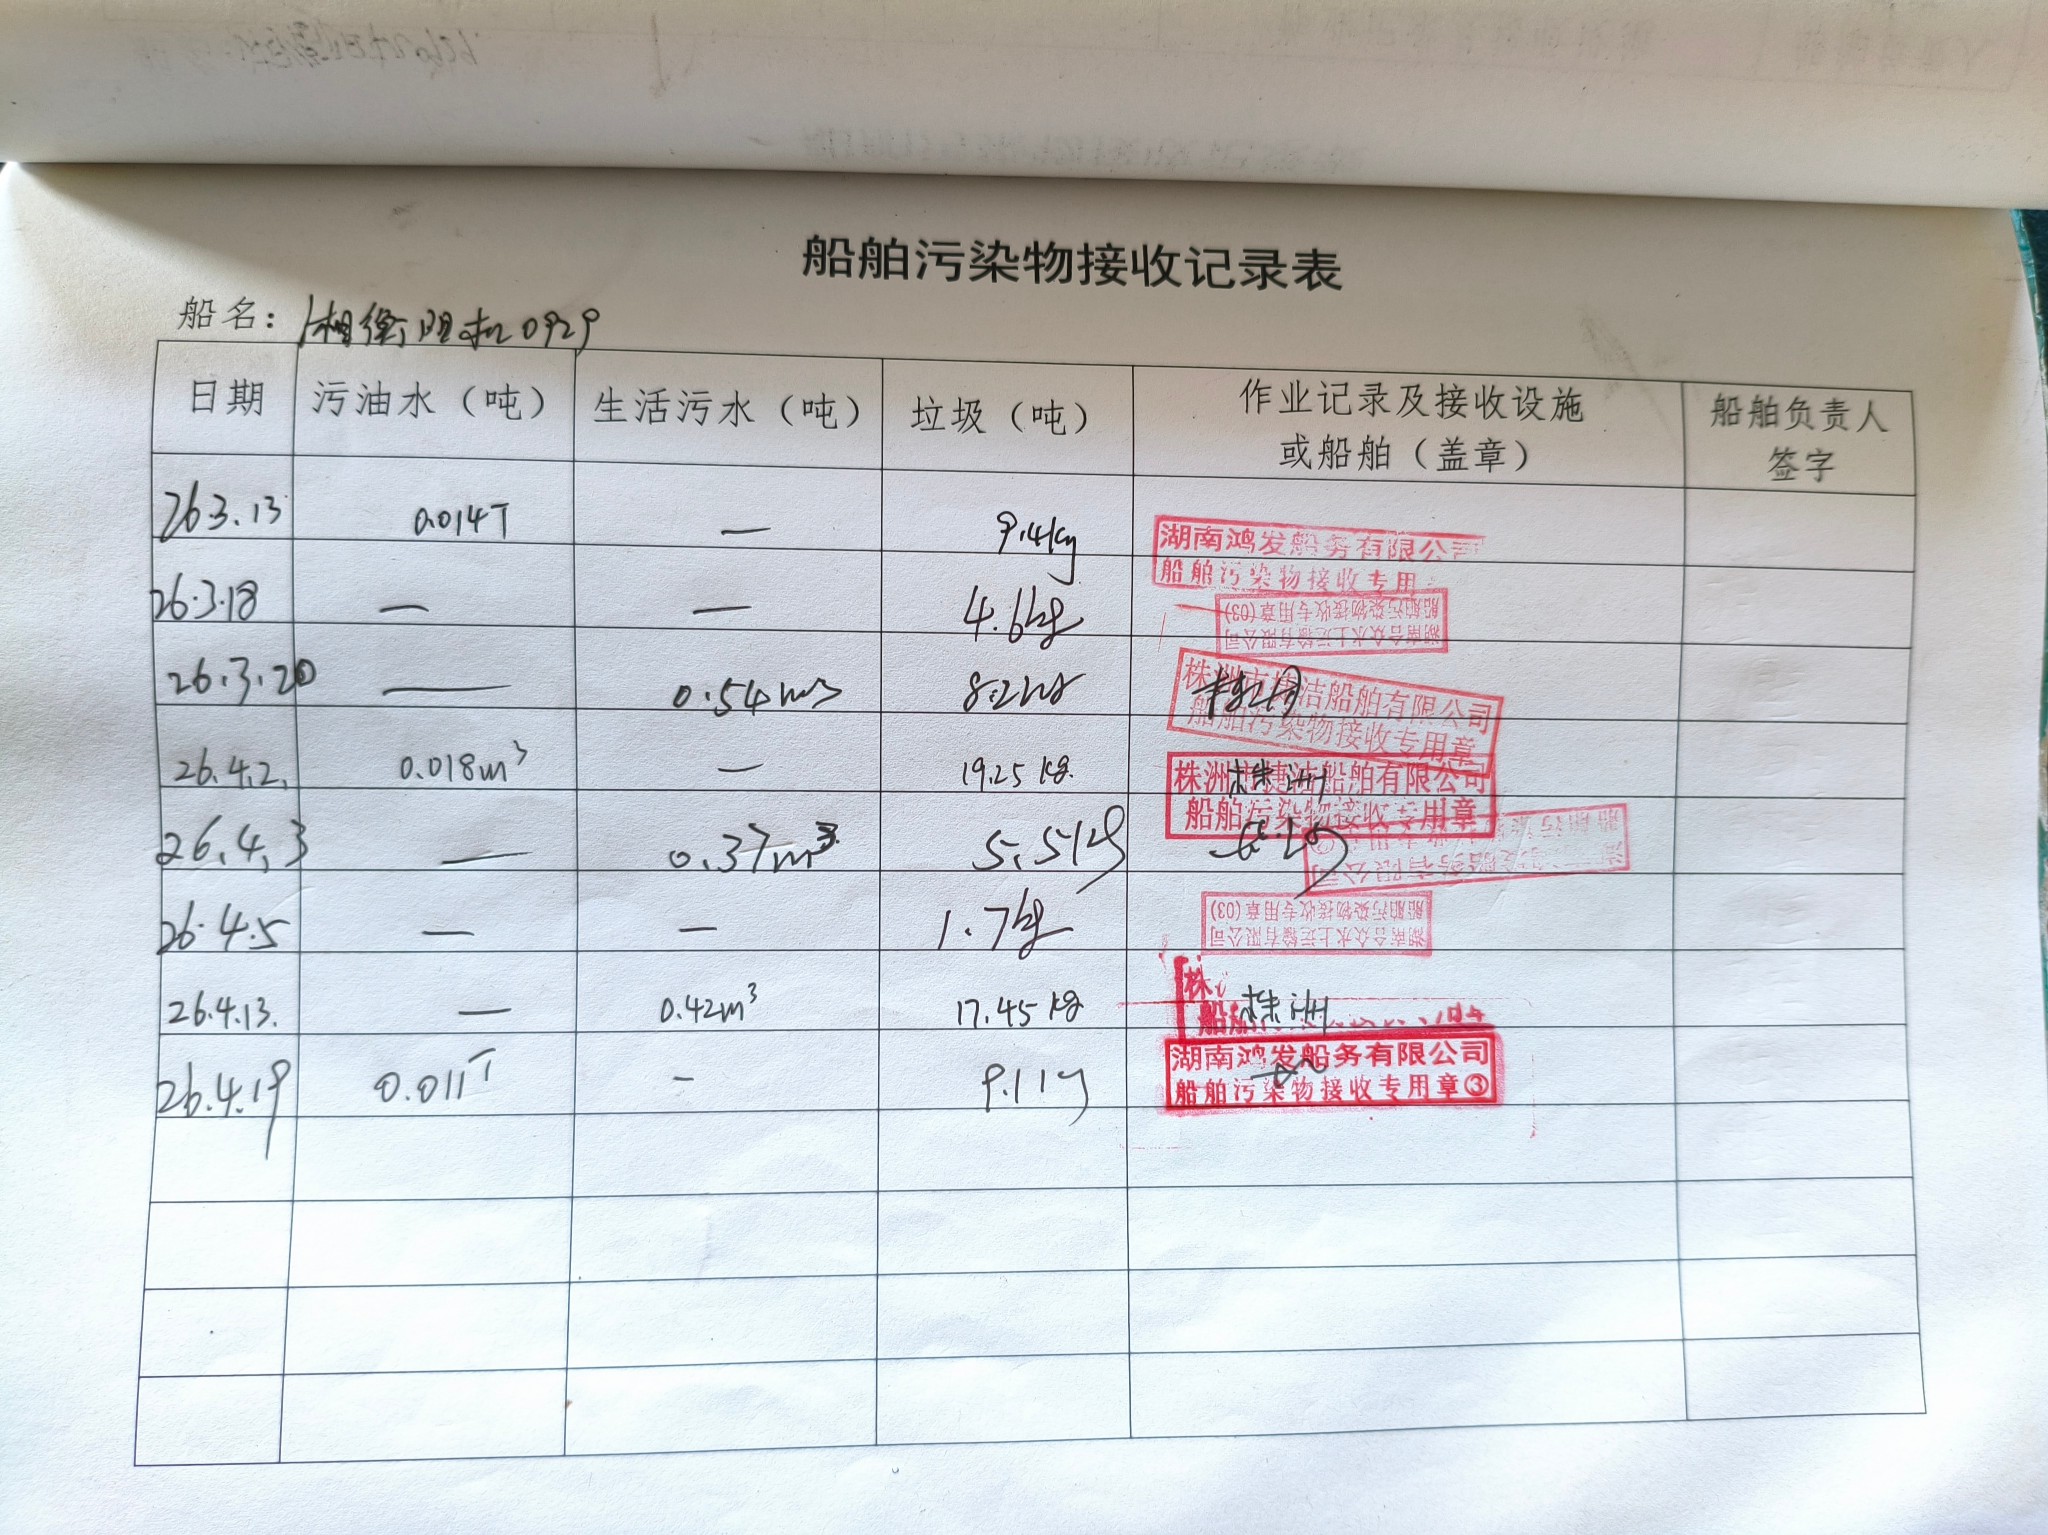 船舶污染物接收记录表
船名：湘衡阳机0929
日期 污油水（吨） 生活污水（吨） 垃圾（吨） 作业记录及接收设施或船舶（盖章） 船舶负责人签字
26.3.13 0.014T — 9.4kg 湖南鸿发船务有限公司
船舶污染物接收专用
26.3.18 — — 4.6kg 船舶污染物接收专用章(03)
湖南合众水上运输有限公司
26.3.20 — 0.54m³ 8.2kg 株洲市捷洁船舶有限公司
船舶污染物接收专用章
26.4.2. 0.018m³ — 19.25 kg. 株洲市捷洁船舶有限公司 株洲
船舶污染物接收专用章
26.4.3 — 0.37m³ 5.5kg
26.4.5 — — 1.7kg 船舶污染物接收专用章(03)
湖南合众水上运输有限公司
26.4.13. — 0.42m³ 17.45 kg 株
船舶 株洲
26.4.19 0.011T - 9.1kg 湖南鸿发船务有限公司
船舶污染物接收专用章③